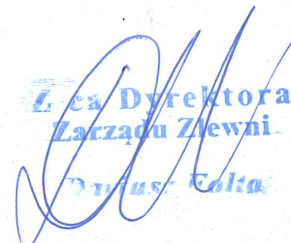 Z-ca Dyrektora
Zarządu Zlewni
Dariusz Folta